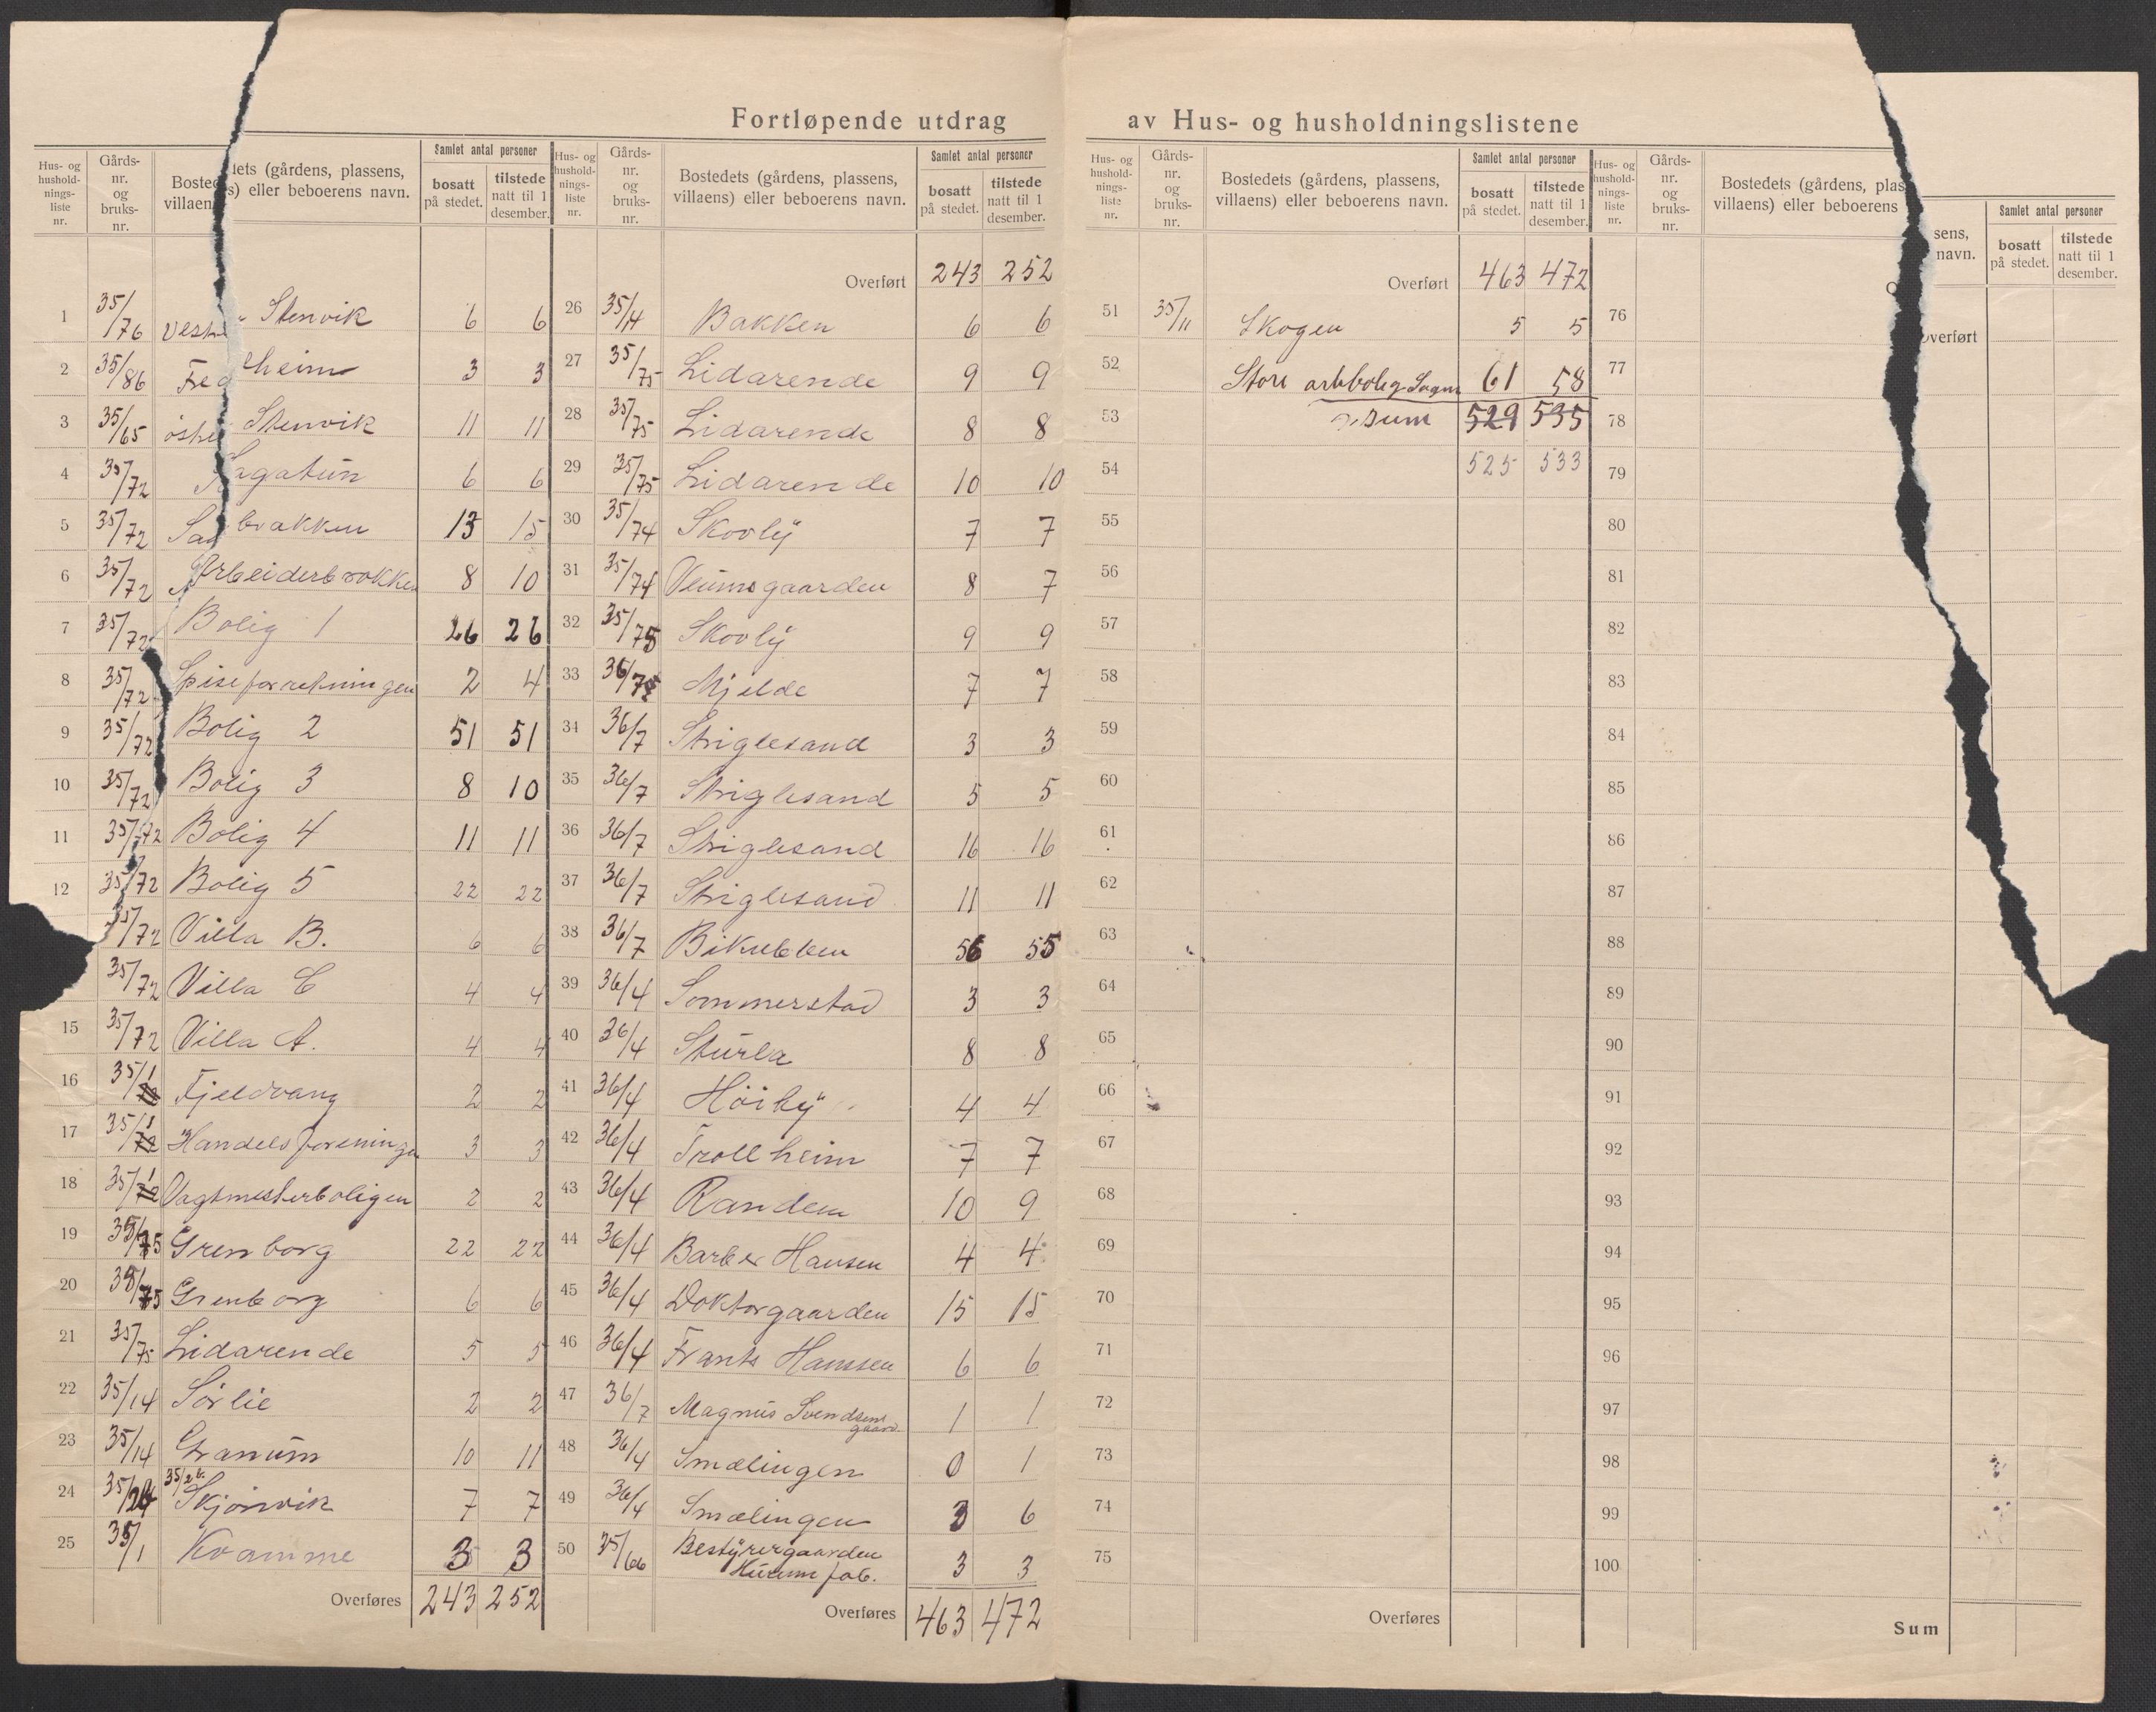 Fortløpende utdrag av Hus- og husholdningslistene
Hus- og hushold-nings-liste nr. Gårds-nr. og bruks-nr. Bostedets (gårdens, plassens, villaens) eller beboerens navn. Samlet antal personer bosatt på stedet. tilstede natt til 1 desember.
1 35/76 Vestre Stenvik 6 6
2 35/86 Fredheim 3 3
3 35/65 östre Stenvik 11 11
4 35/72 Sagatun 6 6
5 35/72 Sagbrakken 13 15
6 35/72 Arbeiderbrakken 8 10
7 35/72 Bolig 1 26 26
8 35/72 Spiseforretningen 2 4
9 35/72 Bolig 2 51 51
10 35/72 Bolig 3 8 10
11 35/72 Bolig 4 11 11
12 35/72 Bolig 5 22 22
35/72 Villa B. 6 6
35/72 Villa C 4 4
15 35/72 Villa A. 4 4
16 35/1 Fjeldvang 2 2
17 35/1 Handelsforeningen 3 3
18 35/1 Vagtmesterboligen 2 2
19 35/75 Grenborg 22 22
20 35/75 Grenborg 6 6
21 35/75 Lidarende 5 5
22 35/14 Sörlie 2 2
23 35/14 Granum 10 11
24 35/24 35/26 Skjönvik 7 7
25 35/1 Kvamme 3 3
Overføres 243 252
Hus- og hushold-nings-liste nr. Gårds-nr. og bruks-nr. Bostedets (gårdens, plassens, villaens) eller beboerens navn. Samlet antal personer bosatt på stedet. tilstede natt til 1 desember.
Overført 243 252
26 35/14 Bakken 6 6
27 35/75 Lidarende 9 9
28 35/75 Lidarende 8 8
29 35/75 Lidarende 10 10
30 35/74 Skovly 7 7
31 35/74 Veumsgaarden 8 7
32 35/75 Skovly 9 9
33 36/75 Mjelde 7 7
34 36/7 Striglesand 3 3
35 36/7 Striglesand 5 5
36 36/7 Striglesand 16 16
37 36/7 Striglesand 11 11
38 36/7 Bikubben 56 55
39 36/4 Sommerstad 3 3
40 36/4 Sturla 8 8
41 36/4 Höiby 4 4
42 36/4 Trollheim 7 7
43 36/4 Randem 10 9
44 36/4 Barber Hansen 4 4
45 36/4 Doktorgaarden 15 15
46 36/4 Frants Hansen 6 6
47 36/7 Magnus Svendsens gaard. 1 1
48 36/4 Smælingen 0 1
49 36/4 Smælingen 3 6
50 35/66 Bestyrergaarden Hurum fab. 3 3
Overføres 463 472
Hus- og hushold-nings-liste nr. Gårds-nr. og bruks-nr. Bostedets (gårdens, plassens, villaens) eller beboerens navn. Samlet antal personer bosatt på stedet. tilstede natt til 1 desember.
Overført 463 472
51 35/11 Skogen 5 5
52 Store arbbolig Sagen 61 58
53 Sum 529 535
54 525 533
55
56
57
58
59
60
61
62
63
64
65
66
67
68
69
70
71
72
73
74
75
Overføres
Hus- og hushold-nings-liste nr. Gårds-nr. og bruks-nr. Bostedets (gårdens, plassens, villaens) eller beboerens navn. Samlet antal personer bosatt på stedet. tilstede natt til 1 desember.
Overført
76
77
78
79
80
81
82
83
84
85
86
87
88
89
90
91
92
93
94
95
96
97
98
99
100
Sum